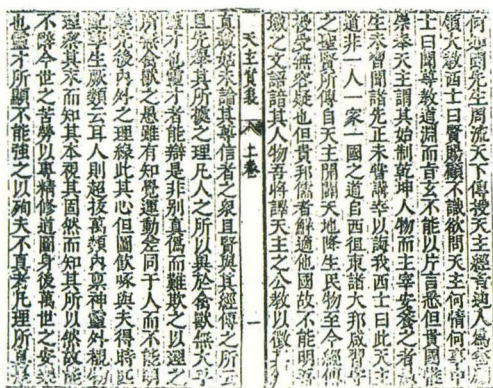 何也聞先生周流天下傳授天主經旨迪人為善
領大教西士曰賢賜顧不識欲問天主何情何事中
士曰聞尊教道淵而旨玄不能以片言悉但貴國惟
崇奉天主謂其始制乾坤人物而主宰安養之者愚
生未習聞諸先正未嘗講幸以誨我西士曰此天主
道非一人一家一國之道自西徂東諸大邦咸習守
之聖賢所傳自天主開闢天地降生民物至今經傳
授受無容疑也但貴邦儒者鮮適他國故不能明吾
域之文語諳其人物吾將譯天主之公教以徵其
天主實義 上卷 一
真教姑未論其尊信者之衆且賢與其經傳之所云
且先舉其所據之理凡人之所以異於禽獸無大乎
靈才也靈才者能辯是非別真偽而難欺之以理之
所無禽獸之愚雖有知覺運動差同于人而不能明
達先後內外之理緣此其心但圖飲啄與夫得時匹
配孳生厥類云耳人則超拔萬類內禀神靈外覩物
理察其末而知其本視其固然而知其所以然故能
不辭今世之苦勞以專精修道圖身後萬世之安
也靈才所顯不能強之以殉夫不真者凡理所真